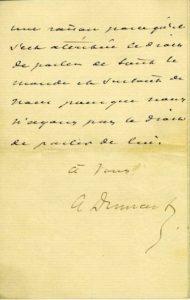 une raison parce qu'il
s'est attribué le droit
de parler de tout le
monde et surtout de
nous pour que nous
n'ayons pas le droit
de parler de lui.
à vous
A Dumas f.